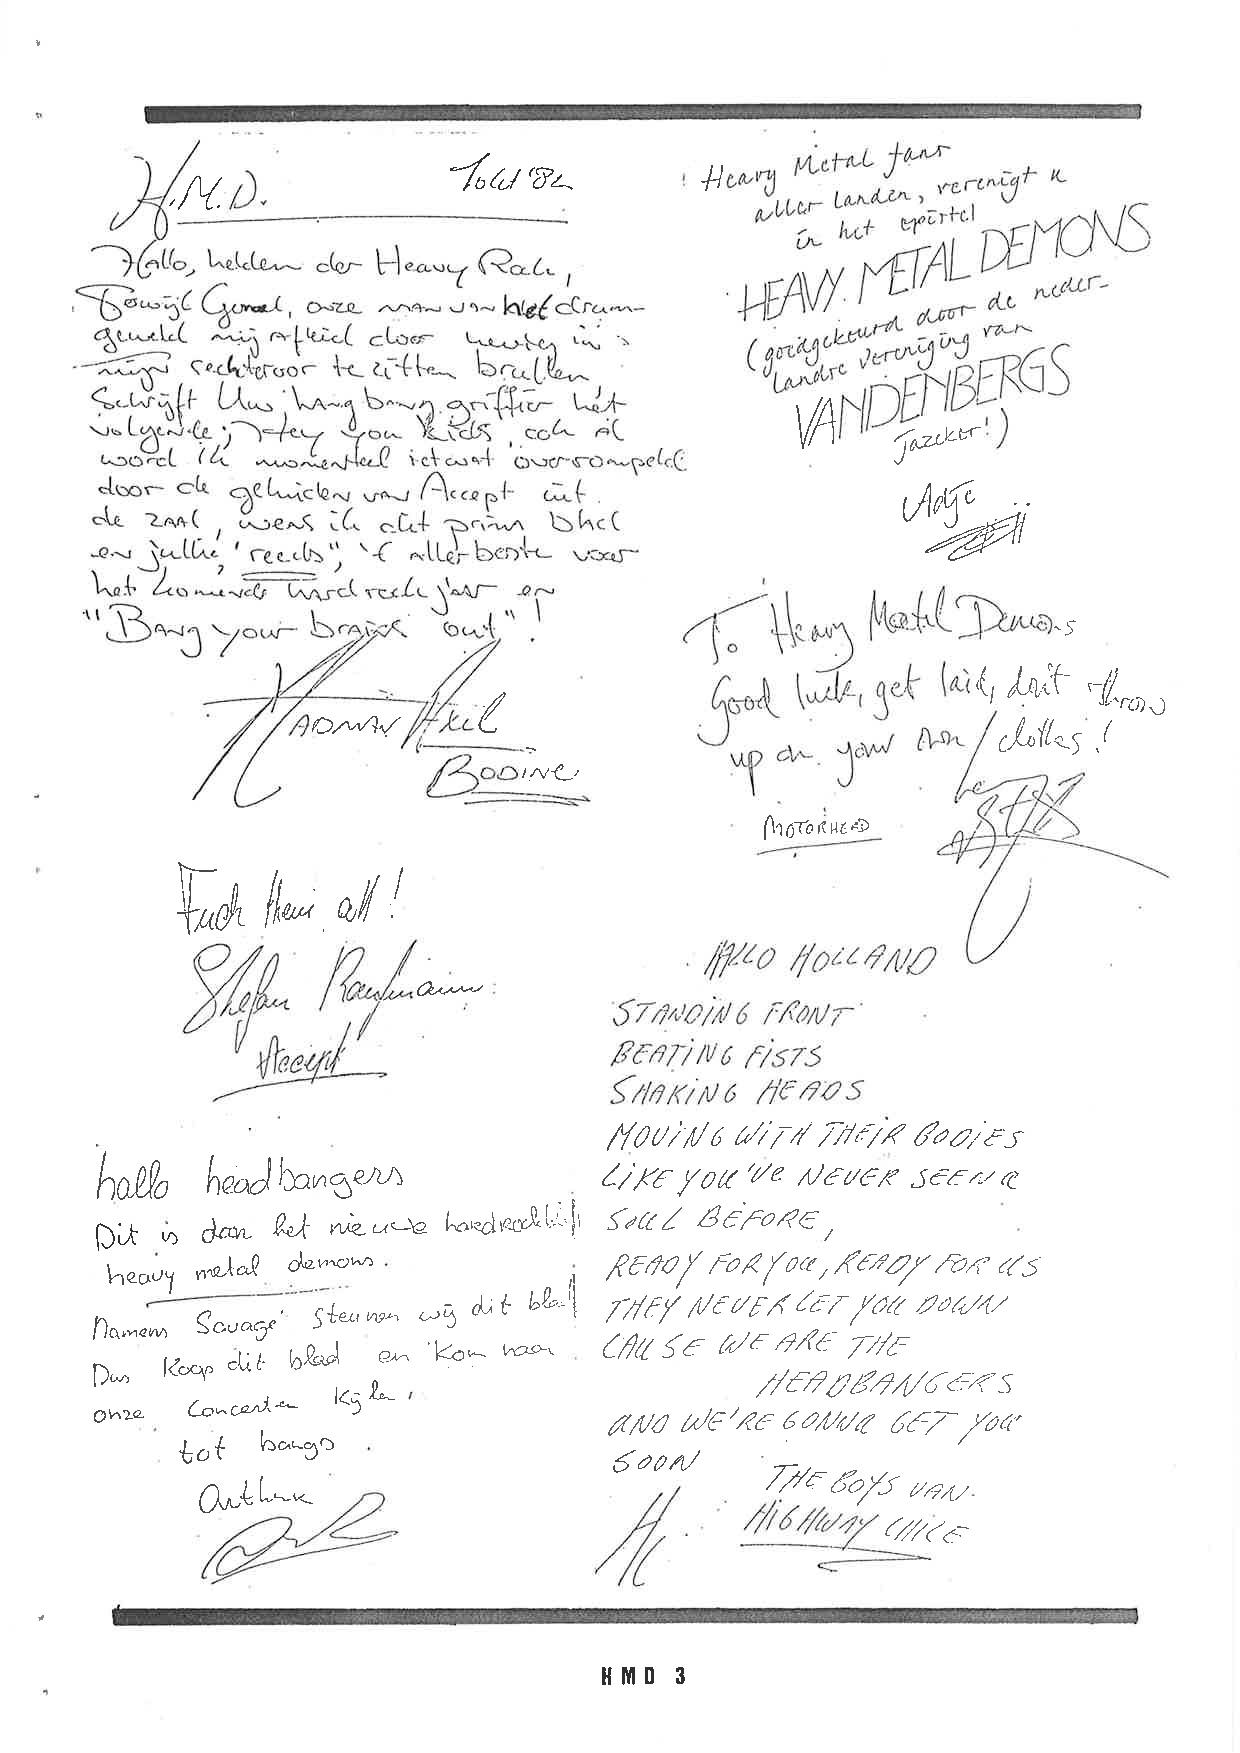 H.M.D.
Hallo, helden der Heavy Rock,
Terwijl onze man van het drum-
geweld mij afleid door hevig in
mijn rechteroor te zitten brullen
Schrijft Uw hang bang griffier het
volgende; Hey you kids, ook al
word ik momenteel ietwat overrompeld
door de geluiden van Accept uit
de zaal, wens ik dit prima blad
en jullie, "reeds", 't allerbeste voor
het komende hardrock jaar en
"Bang your brains out"!
MADMAN Axel
BODINE
! Heavy Metal fans
aller landen, verenigt u
in het epistel
HEAVY METAL DEMONS
(goedgekeurd door de neder-
landse vereniging van
VANDENBERGS
Jazeker!)
Adje
To Heavy Meatel Demons
Good luck, get laid, don't throw
up on your own clothes!
MOTORHEAD
Fuck them all!
Stefan Kaufmann
Accept
hallo headbangers
Dit is dan het nieuwe hardrockblad
heavy metal demons.
Namens Savage steunen wij dit blad
Dus koop dit blad en kom naar
onze concerten kijken,
tot bangs
HALLO HOLLAND
STANDING FRONT
BEATING FISTS
SHAKING HEADS
MOVING WITH THEIR BODIES
LIKE YOU'VE NEVER SEEN A
SOUL BEFORE,
READY FOR YOU, READY FOR US
THEY NEVER LET YOU DOWN
CAUSE WE ARE THE
HEADBANGERS
AND WE'RE GONNA GET YOU
SOON
THE BOYS VAN
HIGHWAY CHILE
HC
HMD 3